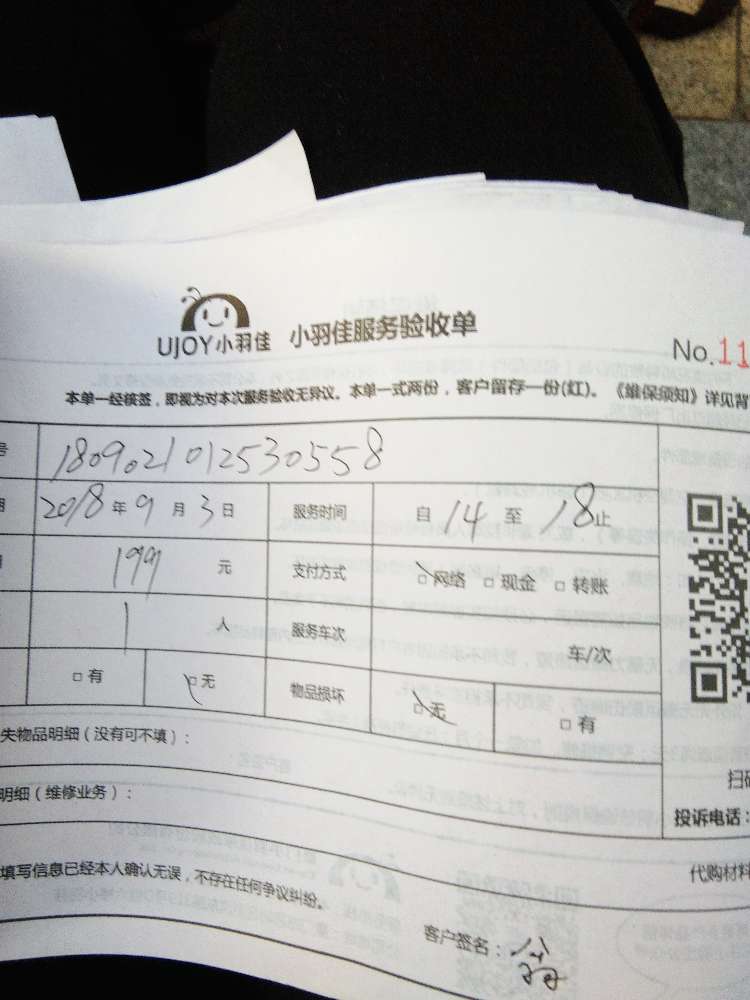 UJOY小羽佳 小羽佳服务验收单
No.11
本单一经核签，即视为对本次服务验收无异议。本单一式两份，客户留存一份(红)。《维保须知》详见背
号 180902101253055 8
期 2018年9月3日 服务时间 自14至18止
199元 支付方式 网络 现金 转账
1人 服务车次 车/次
有 无 物品损坏 无 有
失物品明细（没有可不填）：
扫码
明细（维修业务）：
投诉电话：
代购材料
填写信息已经本人确认无误，不存在任何争议纠纷。
客户签名：翁